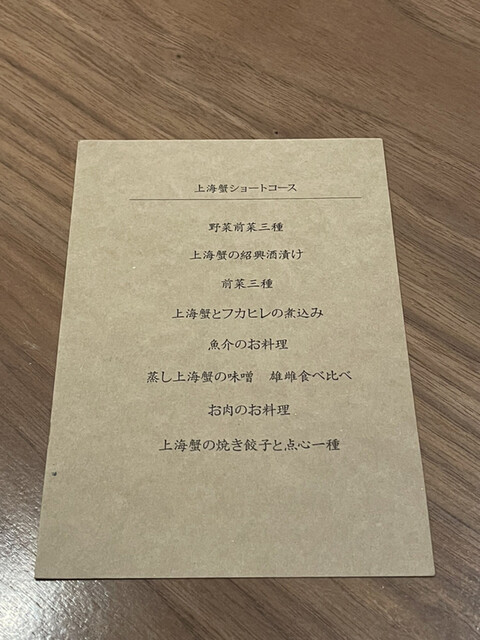 上海蟹ショートコース
野菜前菜三種
上海蟹の紹興酒漬け
前菜三種
上海蟹とフカヒレの煮込み
魚介のお料理
蒸し上海蟹の味噌　雄雌食べ比べ
お肉のお料理
上海蟹の焼き餃子と点心一種